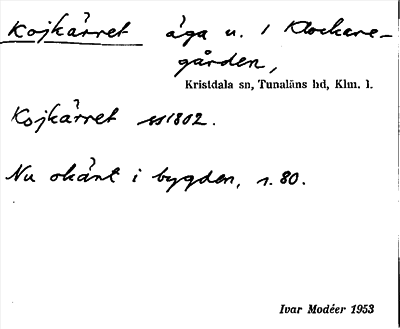 Kojkärret äga u. 1 Klockare-
gården,
Kristdala sn, Tunaläns hd, Klm. l.
Kojkärret 1802.
Nu okänt i bygden, s. 80.
Ivar Modéer 1953